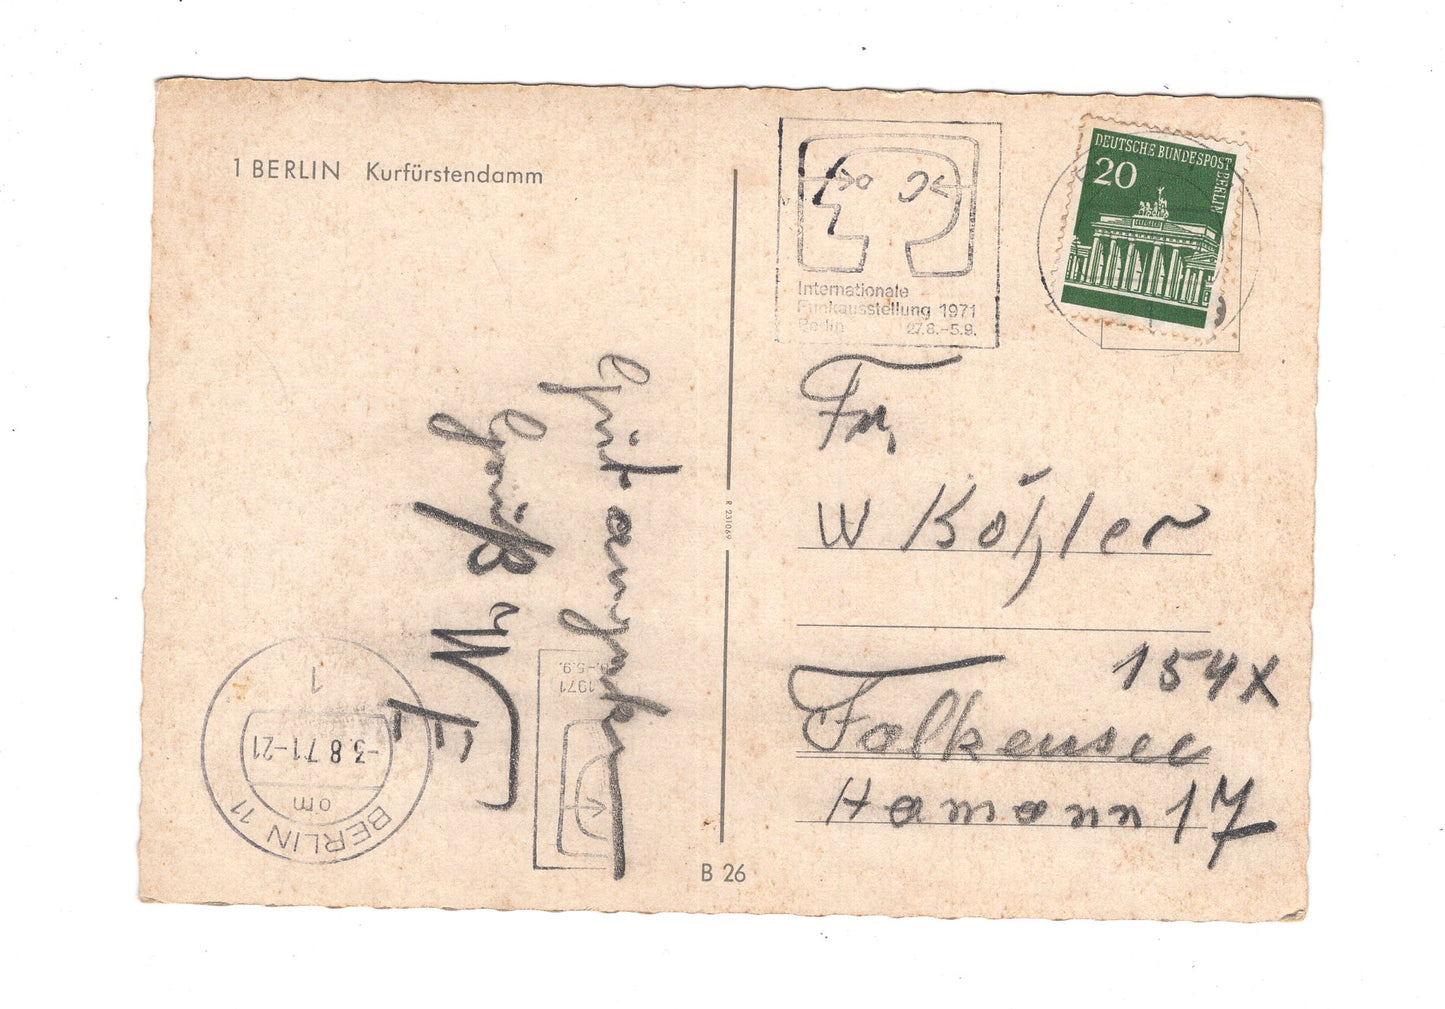 1 BERLIN Kurfürstendamm
Internationale
Funkausstellung 1971
Berlin 27.8.–5.9.
DEUTSCHE BUNDESPOST BERLIN
20
Gut angek.
Gruß
Fr.
W Köhler
154x
Falkensee
Hamann 17
R 231069
B 26
1971
.-5.9.
BERLIN 11
om
-3.8.71-21
1